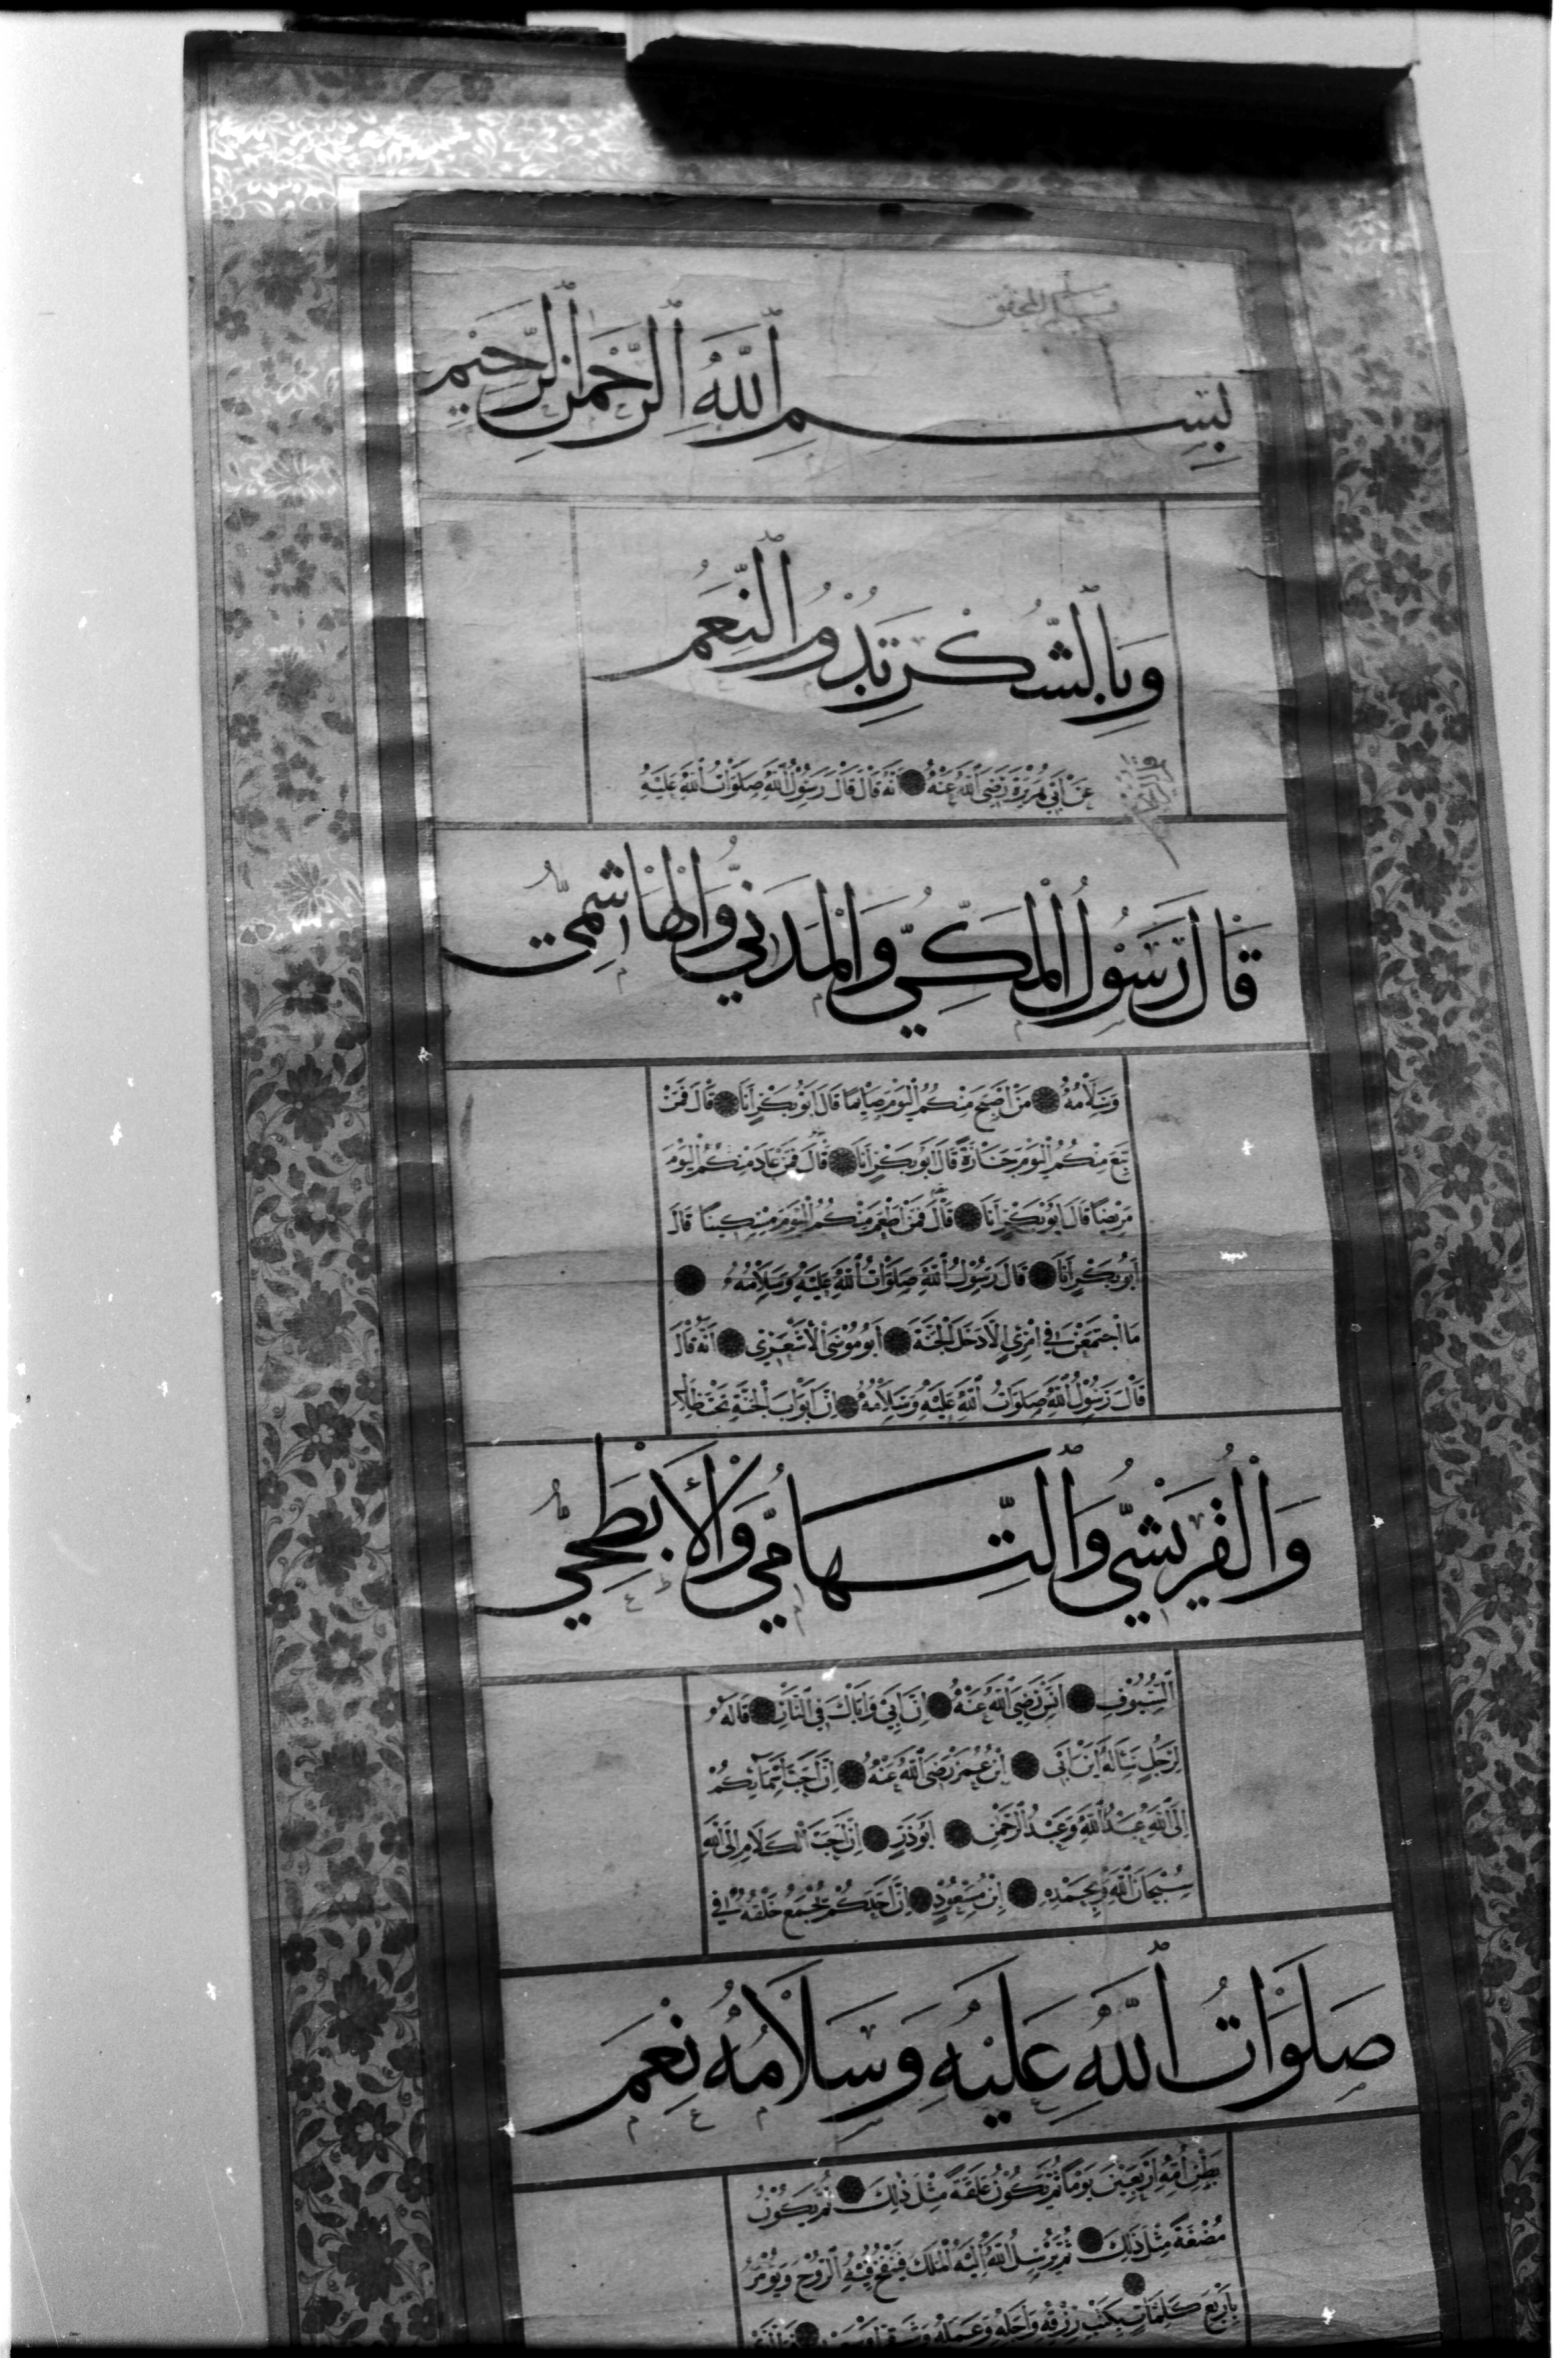 قلم المحقق
بِسْمِ ٱللَّهِ ٱلرَّحْمٰنِ ٱلرَّحِيمِ
وَبِالشُّكْرِ تَدُوْمُ النِّعَمُ
عَنْ أَبِي هُرَيْرَةَ رَضِيَ ٱللَّهُ عَنْهُ أَنَّهُ قَالَ قَالَ رَسُوْلُ ٱللَّهِ صَلَوَاتُ ٱللَّهِ عَلَيْهِ
قَالَ رَسُوْلُ الْمَكِّيُّ وَالْمَدَنِيُّ وَالْهَاشِمِيُّ
وَسَلَامُهُ مَنْ أَصْبَحَ مِنْكُمُ الْيَوْمَ صَائِمًا قَالَ أَبُوْ بَكْرٍ أَنَا قَالَ فَمَنْ
تَبِعَ مِنْكُمُ الْيَوْمَ جَنَازَةً قَالَ أَبُوْ بَكْرٍ أَنَا قَالَ فَمَنْ عَادَ مِنْكُمُ الْيَوْمَ
مَرِيْضًا قَالَ أَبُوْ بَكْرٍ أَنَا قَالَ فَمَنْ أَطْعَمَ مِنْكُمُ الْيَوْمَ مِسْكِيْنًا قَالَ
أَبُوْ بَكْرٍ أَنَا قَالَ رَسُوْلُ ٱللَّهِ صَلَوَاتُ ٱللَّهِ عَلَيْهِ وَسَلَامُهُ
مَا اجْتَمَعْنَ فِي امْرِئٍ إِلَّا دَخَلَ الْجَنَّةَ أَبُوْ مُوْسَى الْأَشْعَرِيْ أَنَّهُ قَالَ
قَالَ رَسُوْلُ ٱللَّهِ صَلَوَاتُ ٱللَّهِ عَلَيْهِ وَسَلَامُهُ إِنَّ أَبْوَابَ الْجَنَّةِ تَحْتَ ظِلَالِ
وَالْقُرَيْشِيُّ وَالتِّهَامِيُّ وَالْأَبْطَحِيُّ
السُّيُوْفِ أَنَسٌ رَضِيَ ٱللَّهُ عَنْهُ إِنَّ أَبِيْ وَأَبَاكَ فِي النَّارِ قَالَهُ
لِرَجُلٍ سَأَلَهُ أَيْنَ أَبِي ابْنُ عُمَرَ رَضِيَ ٱللَّهُ عَنْهُ إِنَّ أَحَبَّ أَسْمَائِكُمْ
إِلَى ٱللَّهِ عَبْدُ ٱللَّهِ وَعَبْدُ الرَّحْمٰنِ أَبُوْ ذَرٍّ إِنَّ أَحَبَّ الْكَلَامِ إِلَى ٱللَّهِ
سُبْحَانَ ٱللَّهِ وَبِحَمْدِهِ ابْنُ مَسْعُوْدٍ إِنَّ أَحَدَكُمْ يُجْمَعُ خَلْقُهُ فِي
صَلَوَاتُ ٱللَّهِ عَلَيْهِ وَسَلَامُهُ نِعَمَ
بَطْنِ أُمِّهِ أَرْبَعِيْنَ يَوْمًا ثُمَّ يَكُوْنُ عَلَقَةً مِثْلَ ذٰلِكَ ثُمَّ يَكُوْنُ
مُضْغَةً مِثْلَ ذٰلِكَ ثُمَّ يُرْسِلُ ٱللَّهُ إِلَيْهِ الْمَلَكَ فَيَنْفُخُ فِيْهِ الرُّوْحَ وَيُؤْمَرُ
بِأَرْبَعِ كَلِمَاتٍ بِكَتْبِ رِزْقِهِ وَأَجَلِهِ وَعَمَلِهِ وَشَقِيٌّ أَوْ سَعِيْدٌ